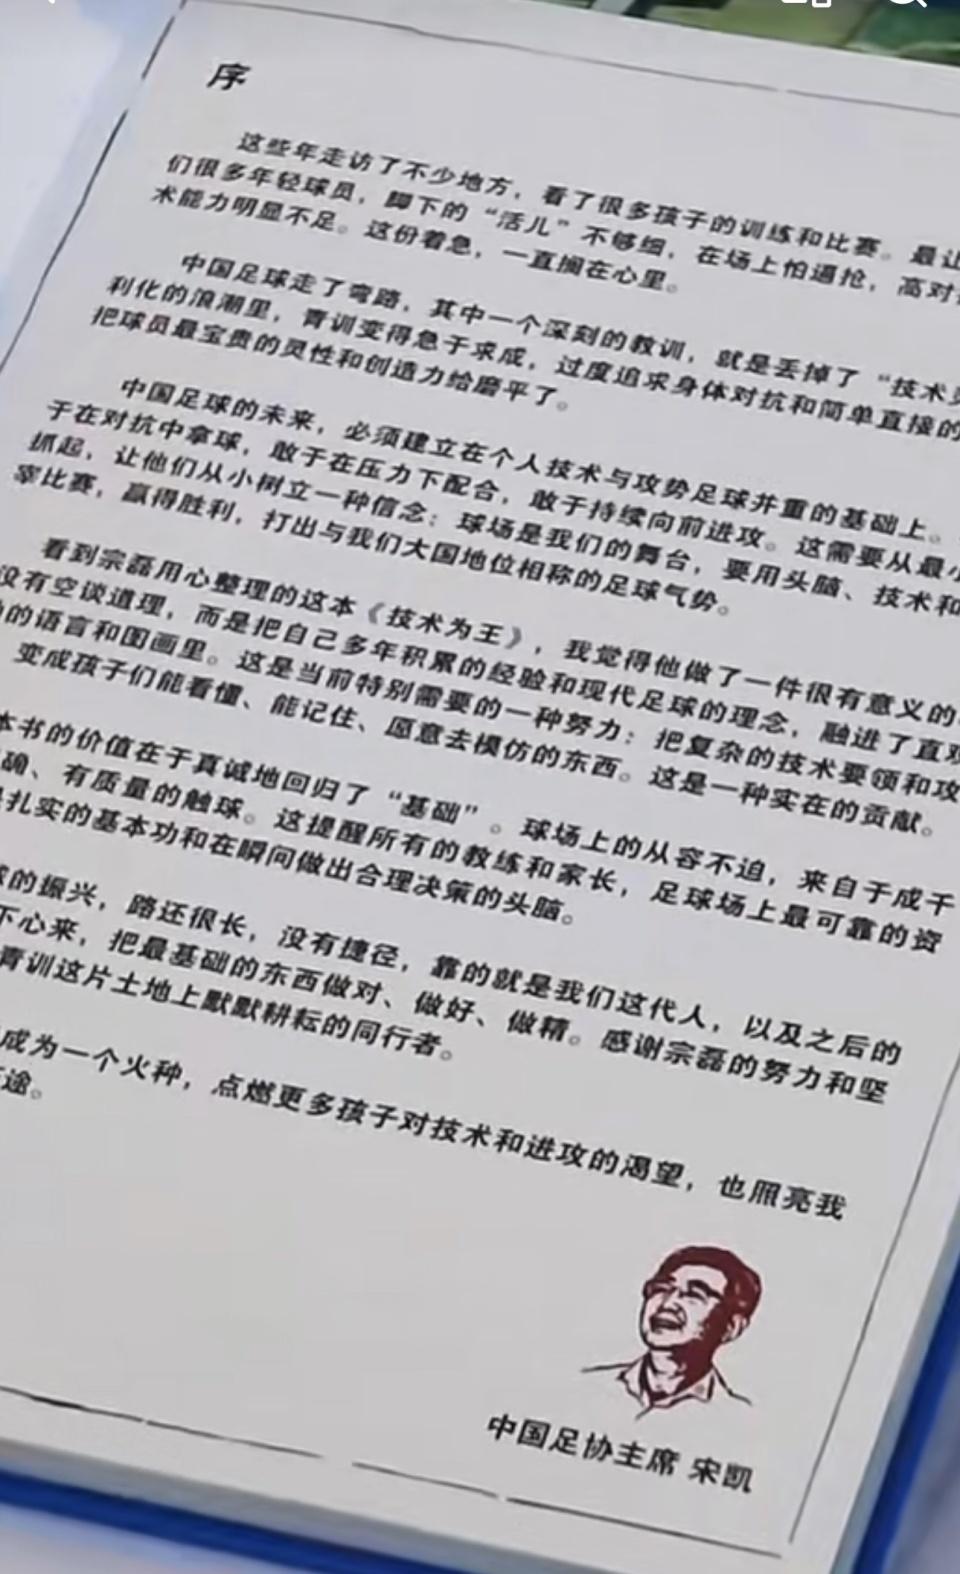 序
这些年走访了不少地方，看了很多孩子的训练和比赛。最让
们很多年轻球员，脚下的“活儿”不够细，在场上怕逼抢，高对
术能力明显不足。这份着急，一直搁在心里。
中国足球走了弯路，其中一个深刻的教训，就是丢掉了“技术
利化的浪潮里，青训变得急于求成，过度追求身体对抗和简单直接的
把球员最宝贵的灵性和创造力给磨平了。
中国足球的未来，必须建立在个人技术与攻势足球并重的基础上。
于在对抗中拿球，敢于在压力下配合，敢于持续向前进攻。这需要从最小
抓起，让他们从小树立一种信念：球场是我们的舞台，要用头脑、技术和
宰比赛，赢得胜利，打出与我们大国地位相称的足球气势。
看到宗磊用心整理的这本《技术为王》，我觉得他做了一件很有意义的
没有空谈道理，而是把自己多年积累的经验和现代足球的理念，融进了直观
的语言和图画里。这是当前特别需要的一种努力：把复杂的技术要领和攻
变成孩子们能看懂、能记住、愿意去模仿的东西。这是一种实在的贡献。
本书的价值在于真诚地回归了“基础”。球场上的从容不迫，来自于成千
确、有质量的触球。这提醒所有的教练和家长，足球场上最可靠的资
扎实的基本功和在瞬间做出合理决策的头脑。
的振兴，路还很长，没有捷径，靠的就是我们这代人，以及之后的
下心来，把最基础的东西做对、做好、做精。感谢宗磊的努力和坚
青训这片土地上默默耕耘的同行者。
成为一个火种，点燃更多孩子对技术和进攻的渴望，也照亮我
途。
中国足协主席 宋凯